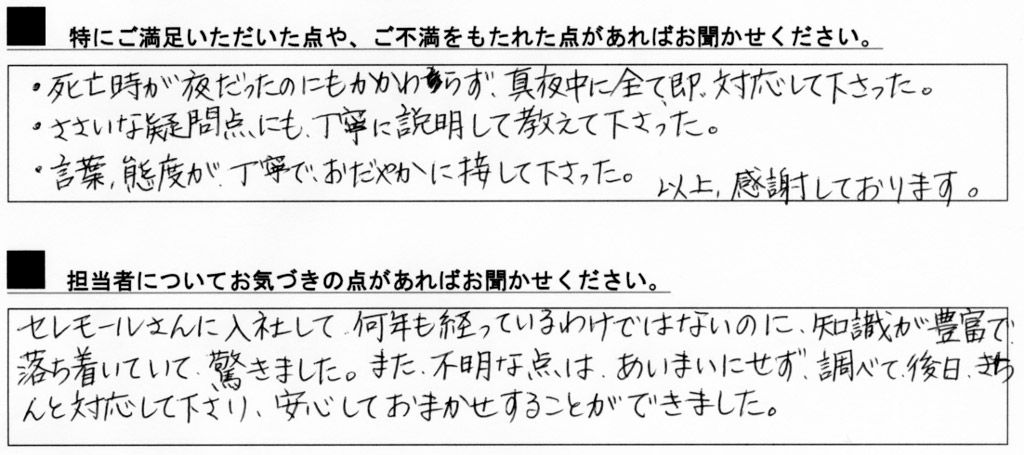 ■ 特にご満足いただいた点や、ご不満をもたれた点があればお聞かせください。
・死亡時が夜だったのにもかかわらず、真夜中に全て、即、対応して下さった。
・ささいな疑問点にも、丁寧に説明して教えて下さった。
・言葉，態度が、丁寧で、おだやかに接して下さった。
以上，感謝しております。
■ 担当者についてお気づきの点があればお聞かせください。
セレモールさんに入社して、何年も経っているわけではないのに、知識が豊富で、
落ち着いていて、驚きました。また、不明な点は、あいまいにせず、調べて、後日、きち
んと対応して下さり、安心しておまかせすることができました。